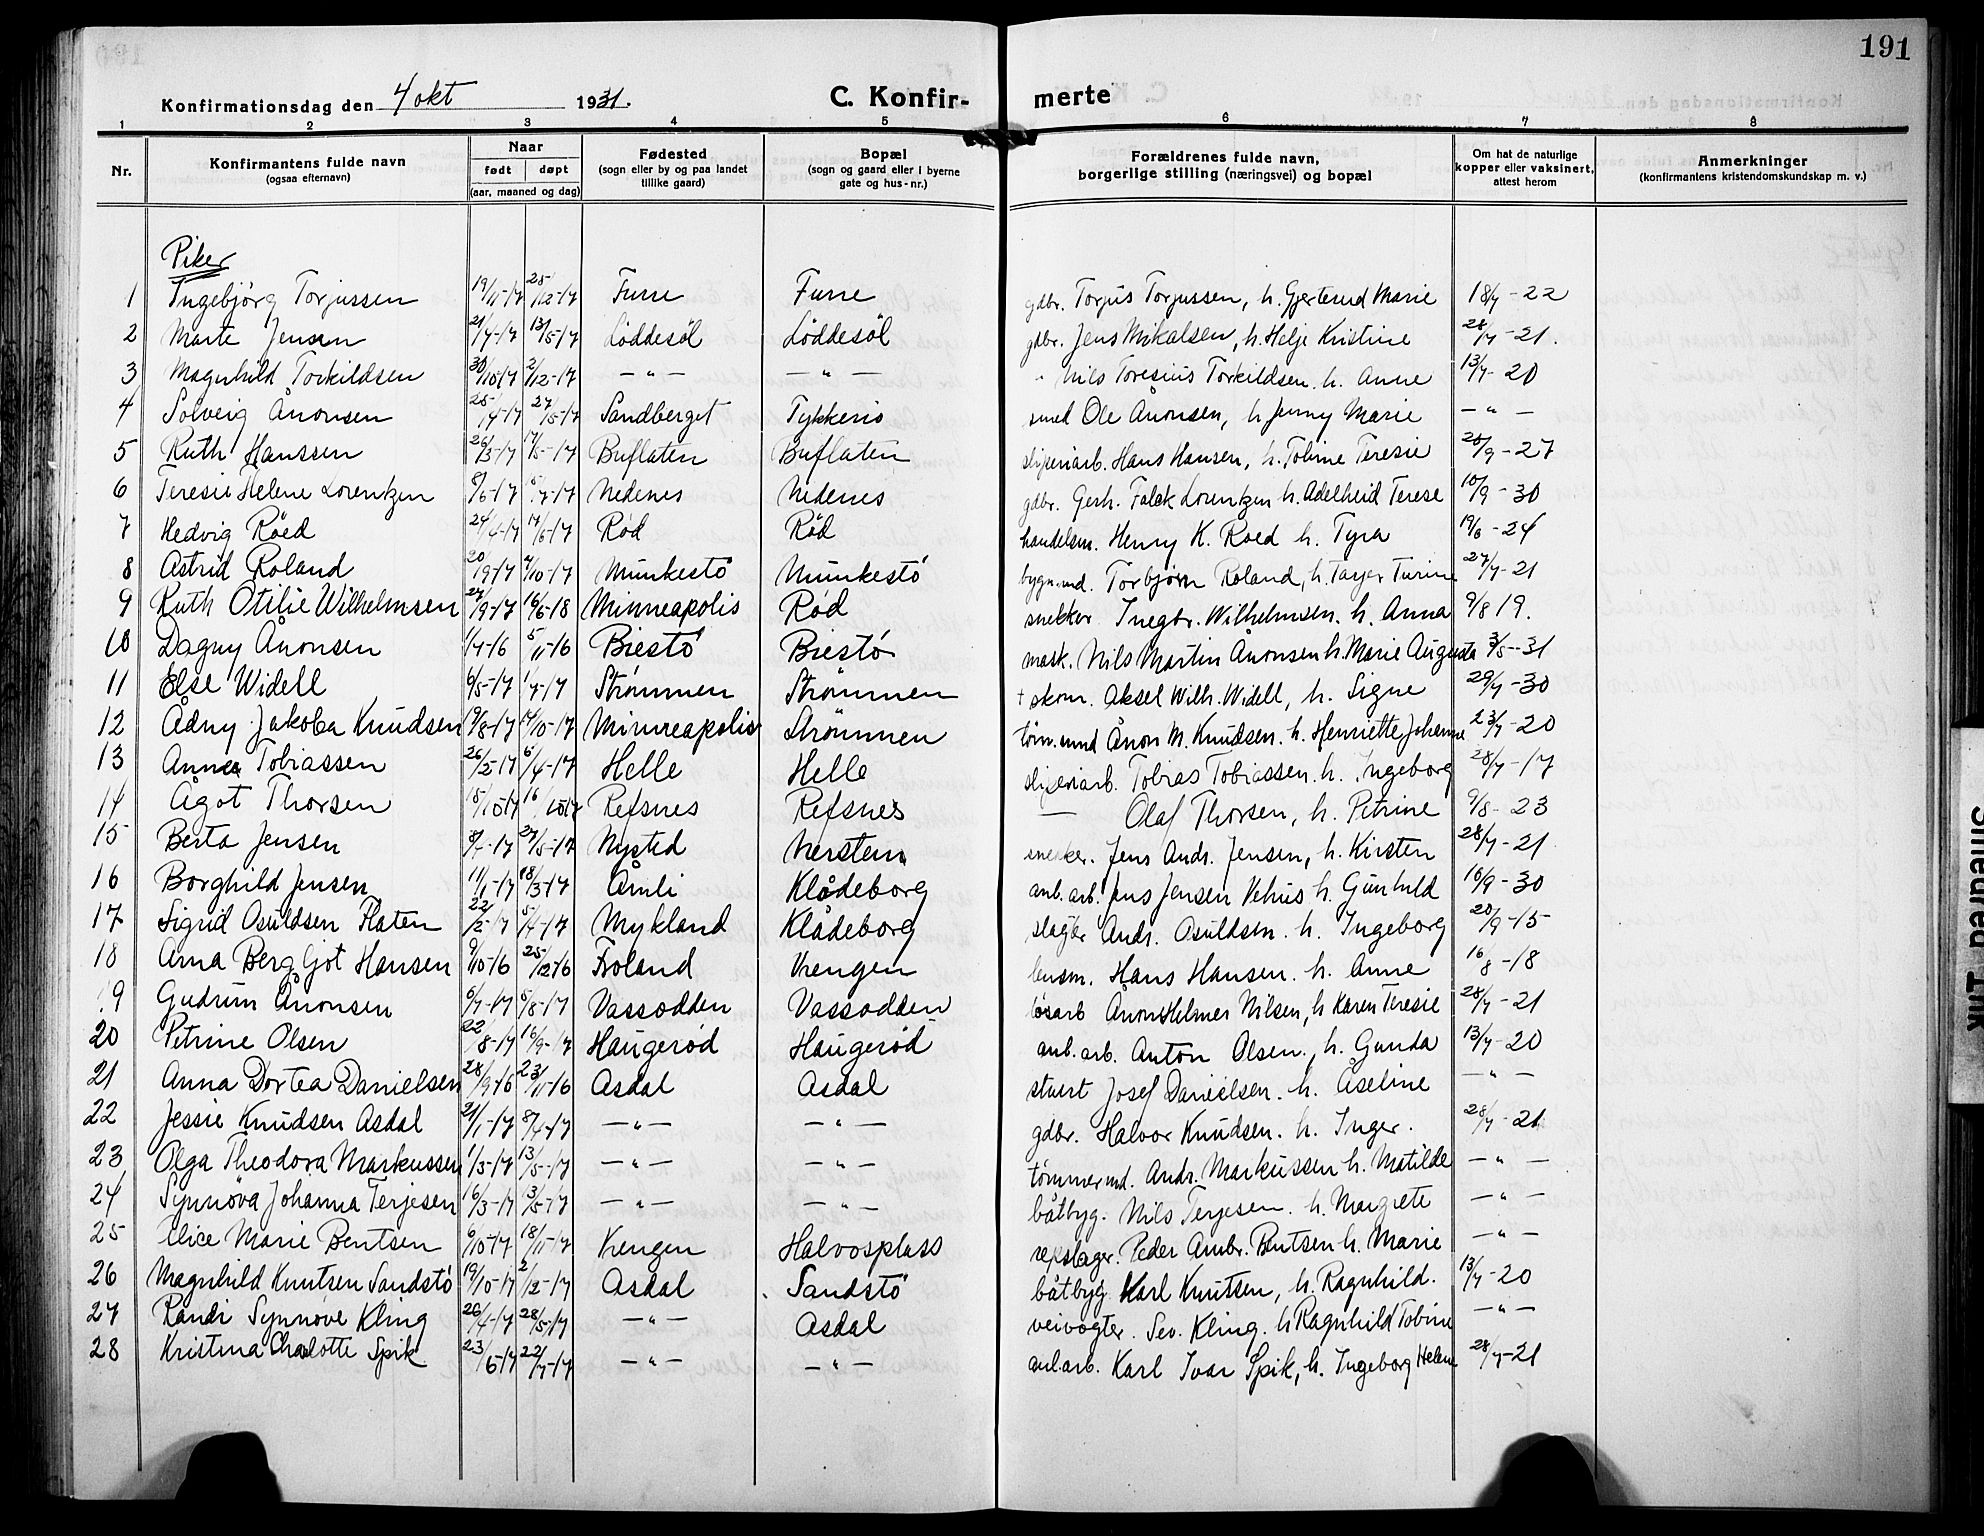 191
Konfirmationsdag den 4 okt 1931. C. Konfir- merte
1 2 3 4 5 6 7 8
Nr. Konfirmantens fulde navn (ogsaa efternavn) Naar født døpt (aar, maaned og dag) Fødested (sogn eller by og paa landet tillike gaard) Bopæl (sogn og gaard eller i byerne gate og hus-nr.) Forældrenes fulde navn, borgerlige stilling (næringsvei) og bopæl Om hat de naturlige kopper eller vaksinert, attest herom Anmerkninger (konfirmantens kristendomskundskap m. v.)
Piker
1 Ingebjörg Torjussen 19/11-17 25/12-17 Furre Furre gdbr. Torjus Torjussen, h. Gjertrud Marie 18/7-22
2 Marte Jensen 21/4-17 13/5-17 Löddesöl Löddesöl gdbr. Jens Mikalsen, h. Helje Kristine 28/7-21.
3 Magnhild Torkildsen 30/10-17 2/12-17 — " — — " — " Nils Toresius Torkildsen h. Anne 13/7-20
4 Solveig Ånonsen 25/4-17 27/5-17 Sandberget Tykkeris smed Ole Ånonsen, h Jenny Marie — " —
5 Ruth Hanssen 26/3-17 17/5-17 Buflaten Buflaten sliperiarb. Hans Hansen, h. Tobine Teresie 20/9-27
6 Teresie Helene Lorentzen 8/6-17 5/7-17 Nedenes Nedenes gdbr. Gerh. Falck Lorentzen h. Adelheid Terese 10/9-30
7 Hedvig Röed 24/4-17 17/6-17 Rød Rød handelsm. Henry K. Roed h. Tyra 19/6-24
8 Astrid Roland 20/9-17 4/10-17 Munkestö Munkestö bygn.md. Torbjörn Roland, h. Tarjer Turine 27/7-21
9 Ruth Otilie Wilhelmsen 27/9-17 16/6-18 Minneapolis Rød snekker Ingbr. Wilhelmsen. h. Anna 9/8 19.
10 Dagny Ånonsen 1/4-16 5/11-16 Biestö Biestö mask. Nils Martin Ånonsen h. Marie Augusta 3/5-31
11 Else Widell 6/5-17 1/7-17 Strömmen Strömmen + skom. Aksel Wilh. Widell, h. Signe 29/7-30
12 Ådny Jakoba Knudsen 19/8-17 14/10-17 Minneapolis Strömmen töm.md Ånon M. Knudsen. h. Henriette Johanne 23/7-20
13 Anna Tobiassen 26/2-17 6/4-17 Helle Helle sliperiarb. Tobias Tobiassen. h. Ingeborg 28/7-17
14 Ågot Thorsen 15/10-17 16/10-17 Refsnes Refsnes — Olaf Thorsen, h. Petrine 9/8-23
15 Berta Jensen 8/4-17 27/5-17 Nysted Nersten snekker. Jens Andr. Jensen, h. Kirsten 28/7-21
16 Borghild Jensen 11/1-17 18/3-17 Åmli Klådeborg anl. arb. Jens Jensen Vehus h. Gunhild 16/9-30
17 Sigrid Osuldsen Flaten 22/2-17 5/4-17 Mykland Klådeborg Andr. Osuldsen. h. Ingeborg 20/9-15
18 Arna Bergljot Hansen 9/10-16 25/12-16 Froland Vrengen lensm. Hans Hansen. h. Anne 16/8-18
19 Gudrun Ånonsen 6/7-17 5/8-17 Vassodden Vassodden lösarb Ånon Helmer Nilsen, h Karen Teresie 28/7-21
20 Petrine Olsen 22/8-17 16/9-17 Haugeröd Haugeröd anl. arb. Anton Olsen, h. Gunda 13/7-20
21 Anna Dortea Danielsen 28/9-16 23/11-16 Asdal Asdal stuert Josef Danielsen. h. Åseline — " —
22 Jessie Knudsen Asdal 21/1-17 8/4-17 — " — — " — gdbr. Halvor Knudsen. h. Inger. 28/7-21
23 Olga Theodora Markussen 1/3-17 13/5-17 — " — — " — tömmermd. Andr. Markussen h. Matilde — " —
24 Synnöva Johanna Terjesen 16/3-17 13/5-17 — " — — " — båtbyg. Nils Terjesen. h. Margrete — " —
25 Alice Marie Bentsen 6/10-17 18/11-17 Vrengen Halvosplass repslager. Peder Ambr. Bentsen h. Marie — " —
26 Magnhild Knutsen Sandstö 19/10-17 2/12-17 Asdal Sandstö båtbyg Karl Knutsen, h. Ragnhild. 13/7-20
27 Randi Synnöve Kling 26/4-17 28/5-17 — " — Asdal veivogter. Sev. Kling. h Ragnhild Tobine — " —
28 Kristina Charlotte Spik 23/6-17 22/7-17 — " — — " — anl.arb. Karl Ivar Spik, h. Ingeborg Helene 28/7-21